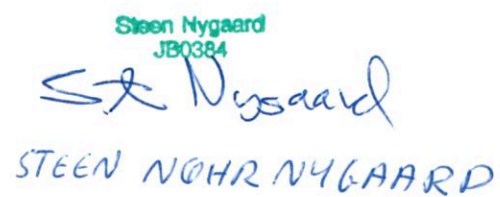 Steen Nygaard
JB0384
St Nygaard
STEEN NØHR NYGAARD